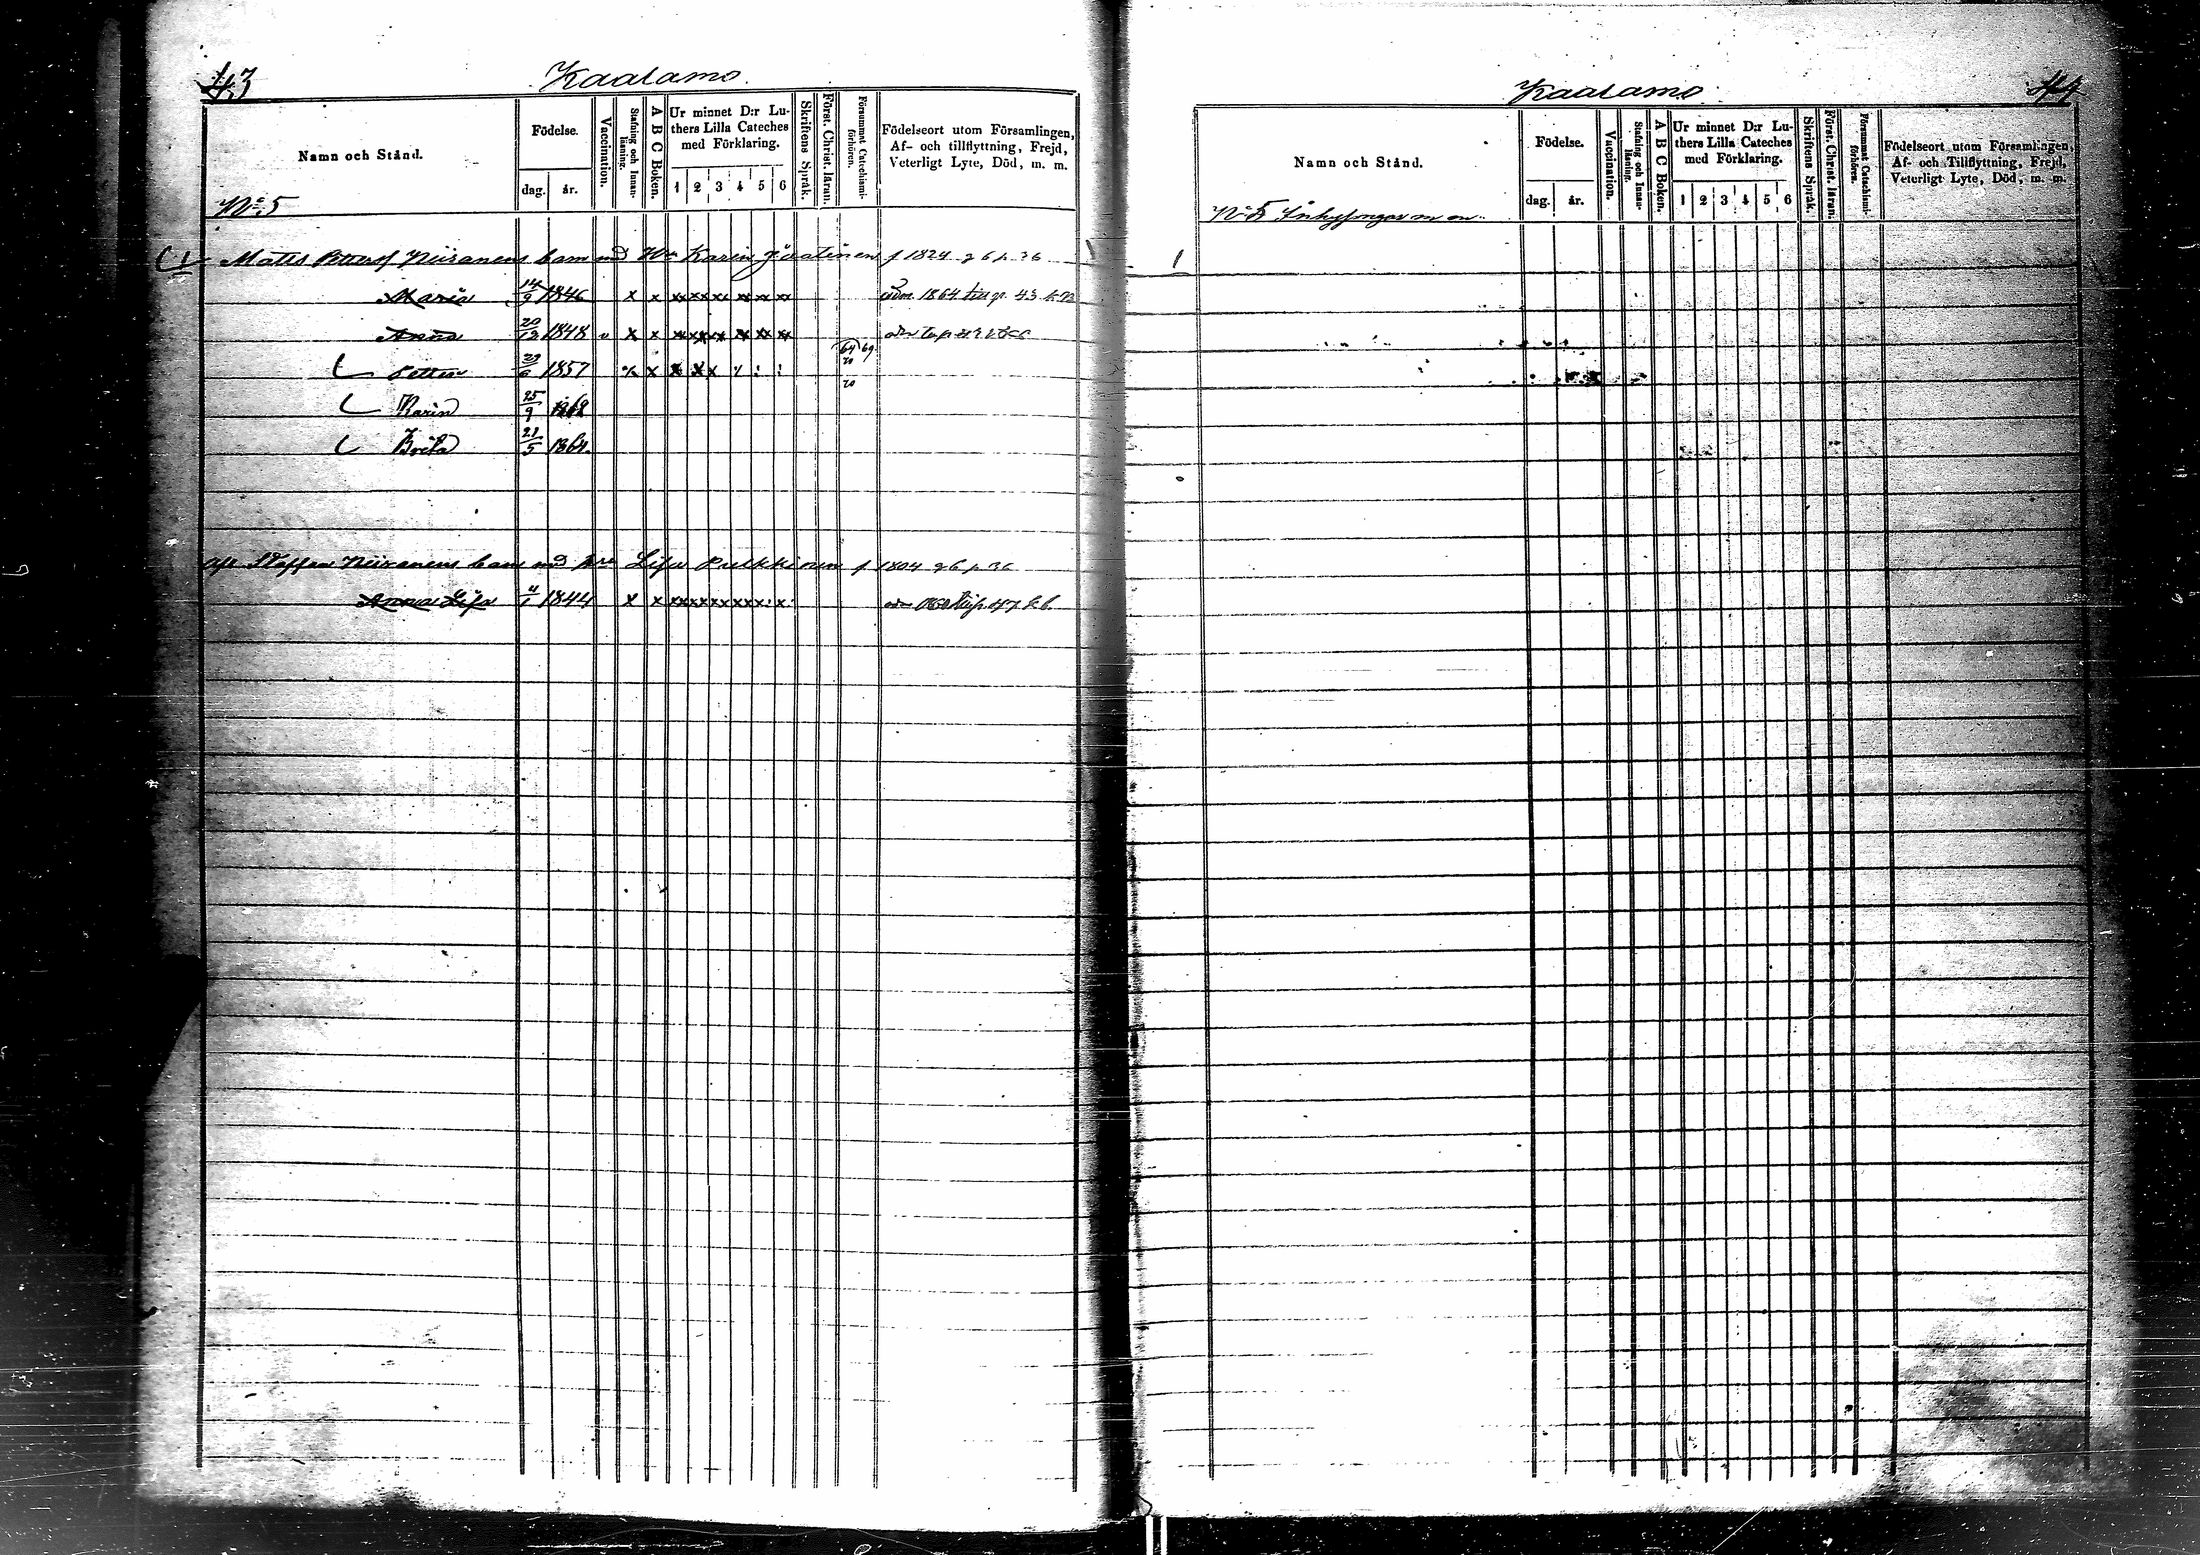 43
Kaalamo
Namn och Stånd.
Födelse.
dag. år.
Vaccination.
Stafning och Innanläsning.
A B C Boken.
Ur minnet D:r Luthers Lilla Cateches med Förklaring.
1 2 3 4 5 6
Skriftens Språk.
Först. Christ. läran.
Försummat Catechismiförhören.
Födelseort utom Församlingen,
Af- och tillflyttning, Frejd,
Veterligt Lyte, Död, m. m.
N:o 5
Matts Niiranens barn md Karin f 1824 p 36
Maria 14/9 1846 x x xx xx xx xx xx xx 1864 till p. 43
Anna 20/12 1848 v x x
Petter 1857 x
Karin 25/9
Brita 21/5 1864
Staffan Niiranens barn md Lisa Pulkkinen f 1804 p 36
Anna Lisa 1844 x x 47
Kaalamo
44
Namn och Stånd.
Födelse.
dag. år.
Vaccination.
Stafning och Innanläsning.
A B C Boken.
Ur minnet D:r Luthers Lilla Cateches med Förklaring.
1 2 3 4 5 6
Skriftens Språk.
Först. Christ. läran.
Försummat Catechismiförhören.
Födelseort utom Församlingen,
Af- och Tillflyttning, Frejd,
Veterligt Lyte, Död, m. m.
N:o 5 Inhysingar
1